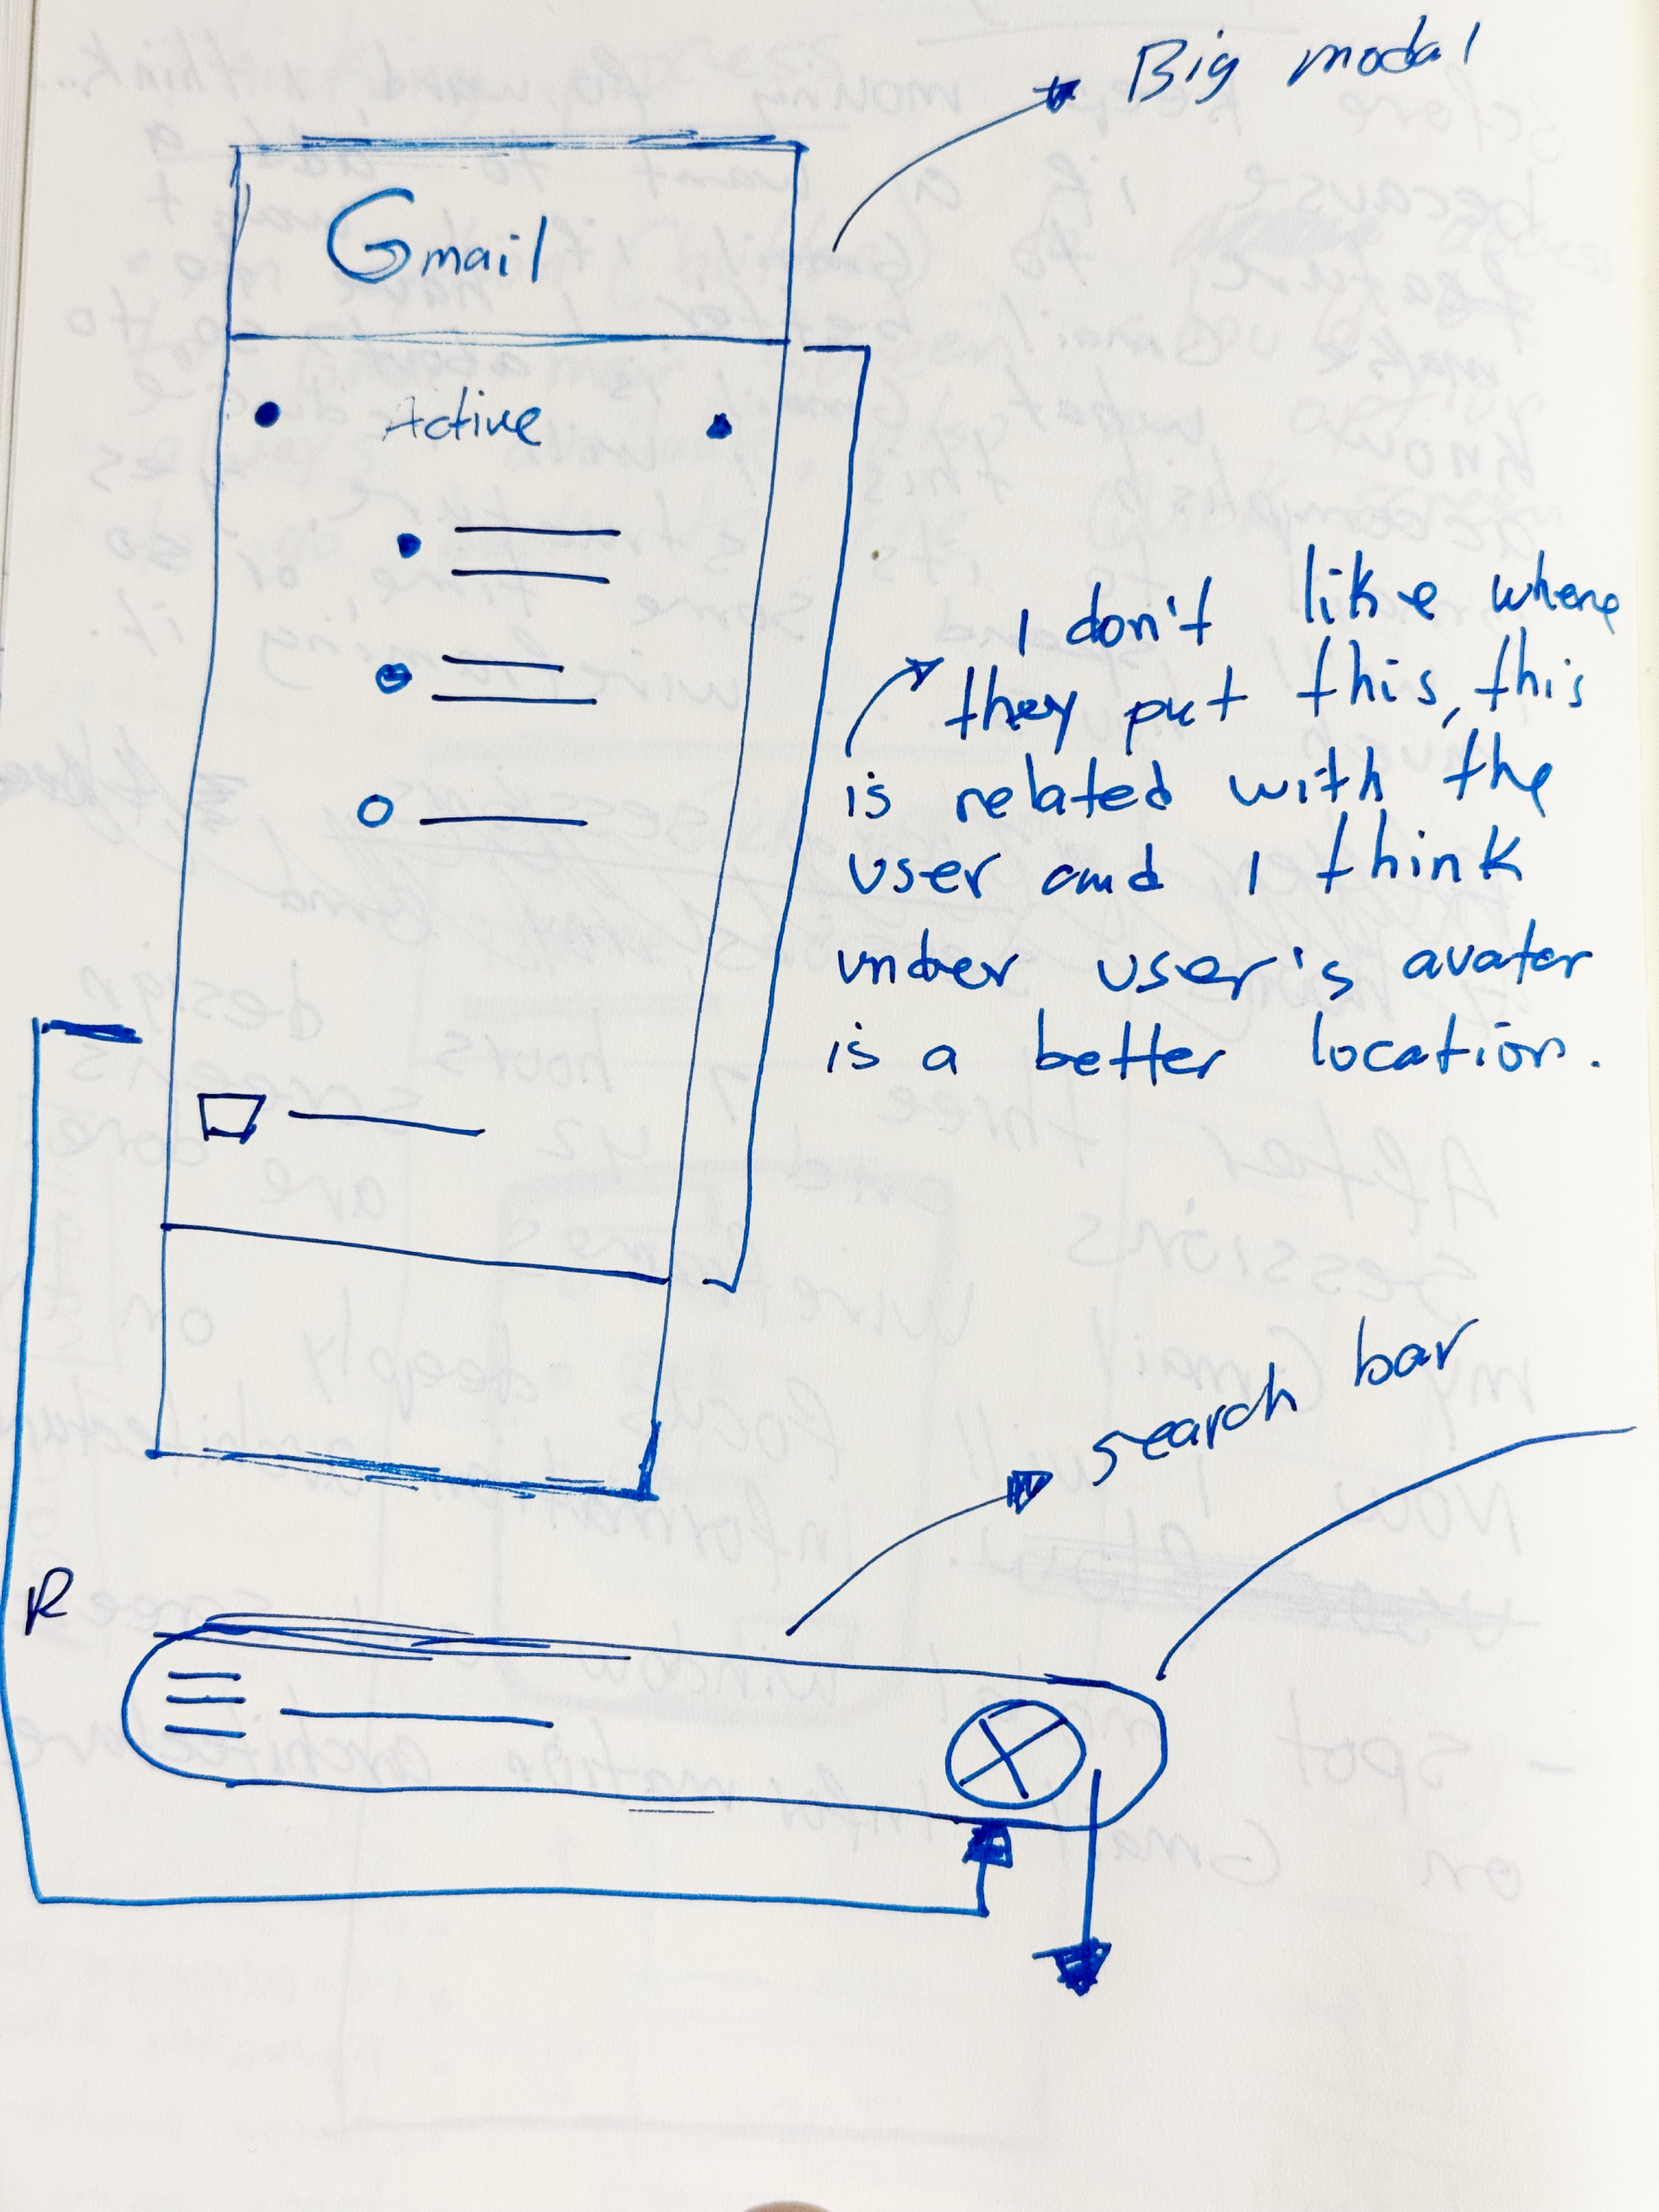 Big modal
Gmail
Active
I don't like where
they put this, this
is related with the
user and I think
under user's avatar
is a better location.
search bar
R